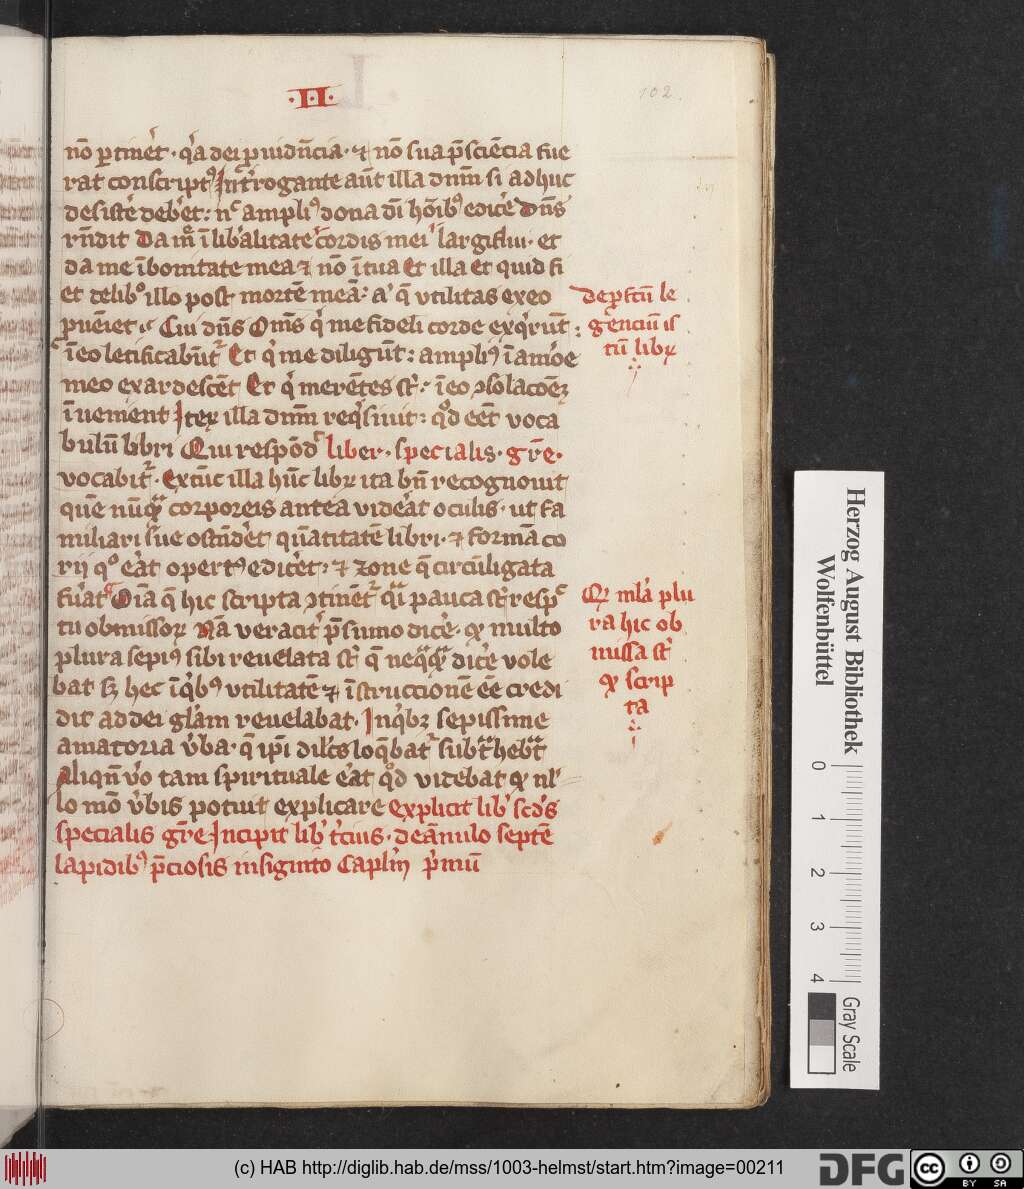 ·II·
102
nō ꝑtinēt · q̇a dei ꝓuidn̄cia · ⁊ nō sua p̄sciēcia fue
rat conscriptꝰ Int̄rogante aūt illa dn̄m si adhuc
desistē debēt : nͨ ampliꝰ dona dī hōībꝰ edicē Dn̄s
rn̄dit Da m̄ ī libālitate cordis mei largiflui · et
da me ī bonitate mea ⁊ nō ī tua Et illa Et quid fi
et de libꝰ illo post mortē meā : a' q̄ vtilitas ex eo
ꝓuēiet Cui dn̄s Om̄s q̇ me fideli corde exq̇rūt :
ī eo letificabūt᷑ Et q̇ me diligūt : ampliꝰ ī amoe
meo exardescēt Et q̇ merētes st̄ : ī eo ꝯsolacoēꝫ
īuenient Iteꝝ illa dn̄m reqͥsiuit : qͦd eēt voca
bulū libri Qui respōd᷑ liber · specialis · gr̄e ·
vocabit᷑ · Ex tūc illa hūc libꝝ ita bn̄ recognouit
quē nūqͣ corporeis antea vidēat oculis · ut fa
miliari sue ostn̄dēt qūatitatē libri · ⁊ formā co
rij qͦ ēat opertꝰ edicēt : ⁊ zone q̄ circūligata
fūat Oīa q̄ hic scripta ꝯtinēt᷑ qͣi pauca st̄ respͨ
tu obmissoꝝ Nā veracit᷑ p̄sumo dicē · qꝫ multo
plura sepiꝰ sibi reuelata st̄ q̄ neqͣqͣ dicē vole
bat sꝫ hec ī qͥbꝰ vtilitatē ⁊ īstruccionē eē credi
dit ad dei gl̄am reuelabat · In qͥbꝫ sepissime
amatoria v̄ba · q̄ ip̄i dilc̄s loq̄bat᷑ subtͣhebͣt
Aliqn̄ v̄o tam spirituale ēat qͦd videbat qꝫ nl̄
lo mō v̄bis potuit explicare Explicit lib᷑ scd̄s
specialis gr̄e Incipit lib᷑ t̄cius · de ānulo septē
lapidibꝰ p̄ciosis insignito Caplm̄ p̄mū
de ꝓfc̄tū le
gencium is
tū libꝝ
Qꝫ ml̄a plu
ra hic ob
missa st̄
qꝫ scrip
ta
Herzog August Bibliothek
Wolfenbüttel
0 1 2 3 4
Gray Scale
(c) HAB http://diglib.hab.de/mss/1003-helmst/start.htm?image=00211
DFG
cc BY SA